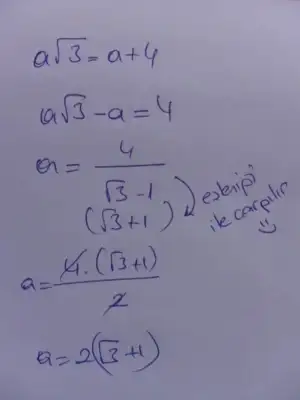 a√3 = a+4
a√3 - a = 4
a = 4 / √3 - 1
(√3+1)
eşleniği
ile çarpılır
a = 4.(√3+1) / 2
a = 2(√3+1)